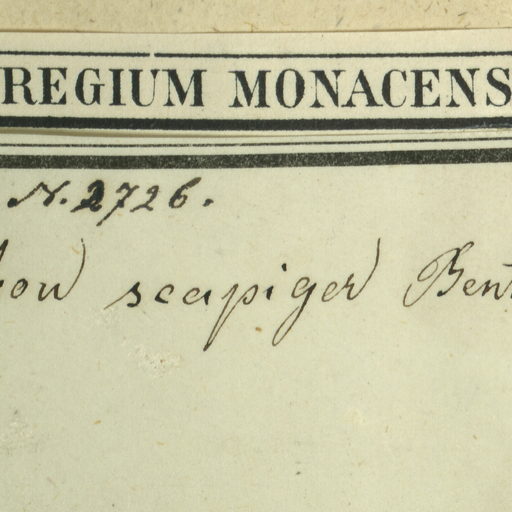 REGIUM MONACENS
N. 2726.
scapiger Bent